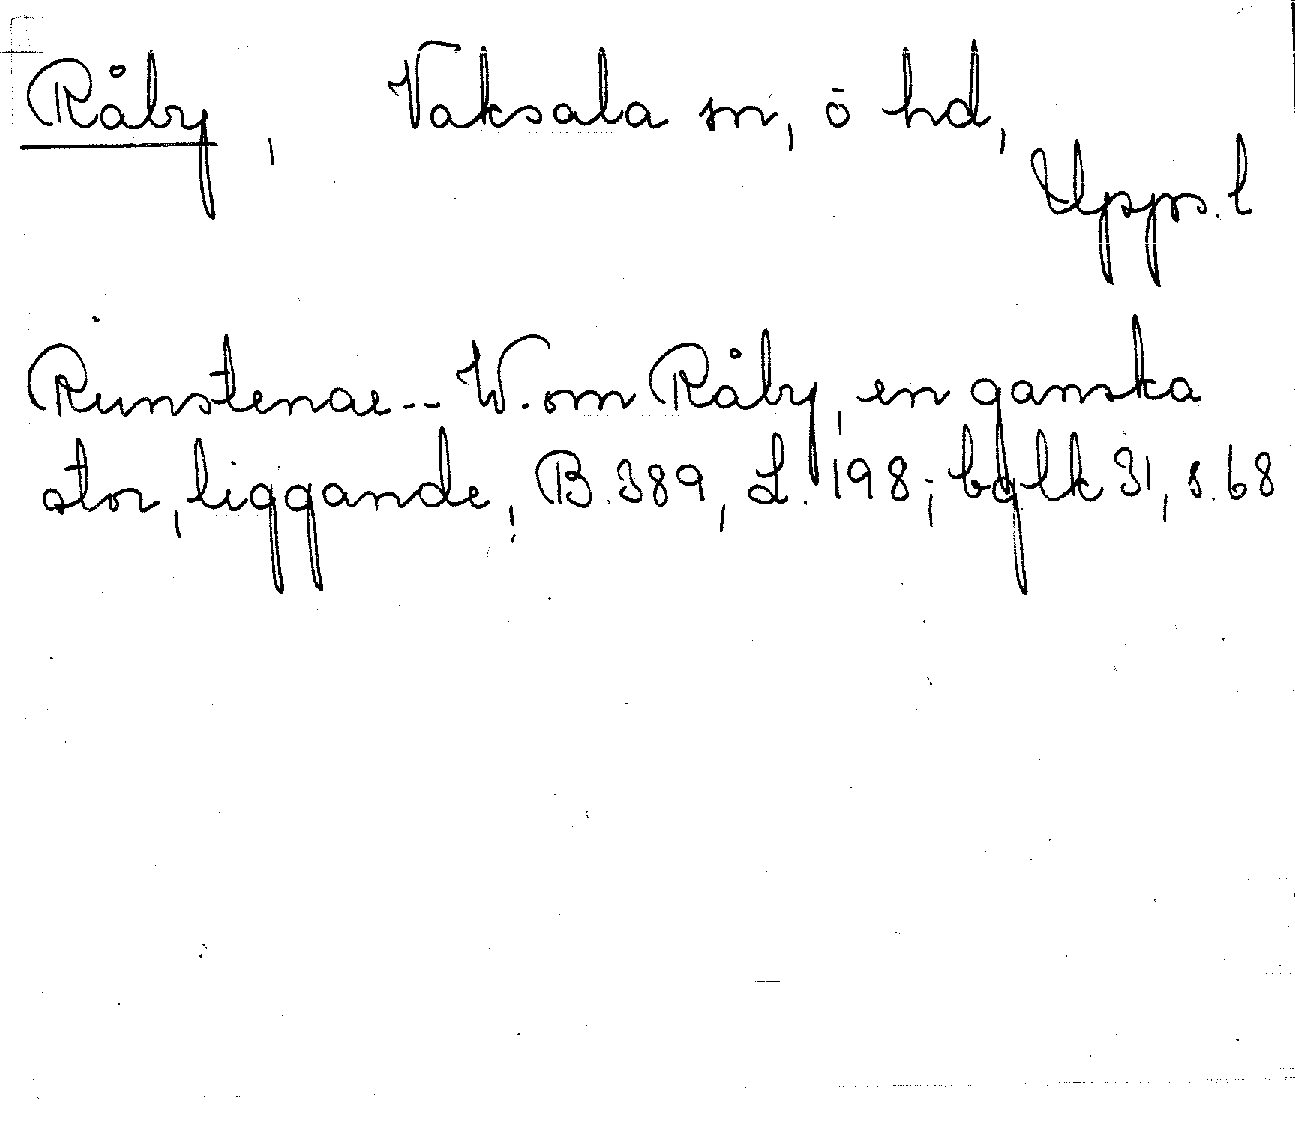 Råby, Vaksala sn, ö hd,
Upps. l
Runstenar -- W. om Råby, en ganska
stor, liggande, B. 389, L. 198; bglk 31, s. 68